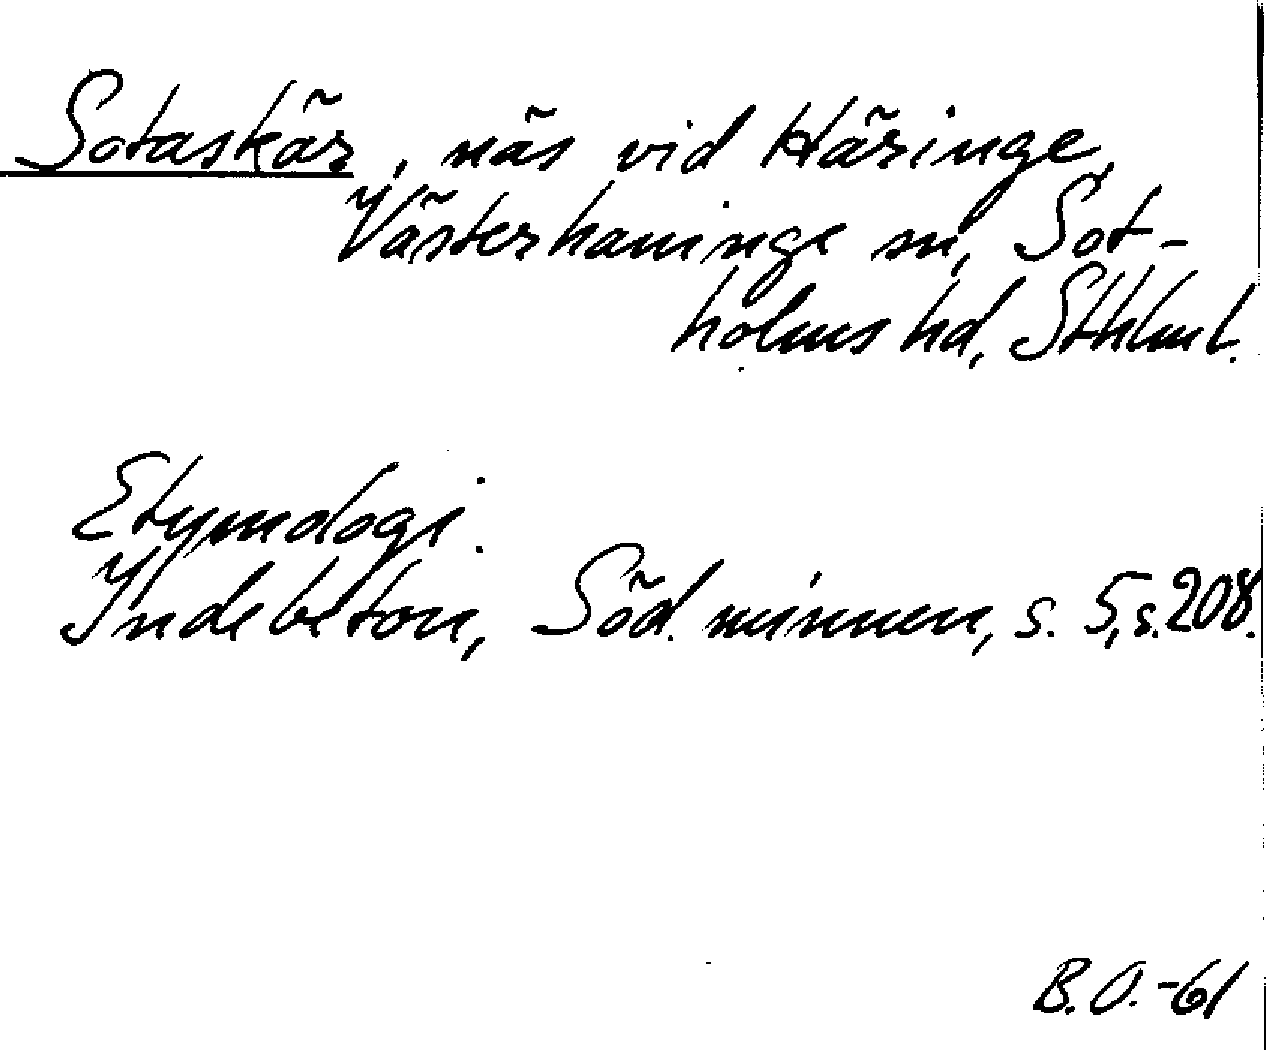 Sotaskär, näs vid Häringe,
Västerhaninge sn, Sot-
holms hd, Sthlm l.
Etymologi:
Indebetou, Söd. minnen, s. 5, s. 208.
B.O.-61